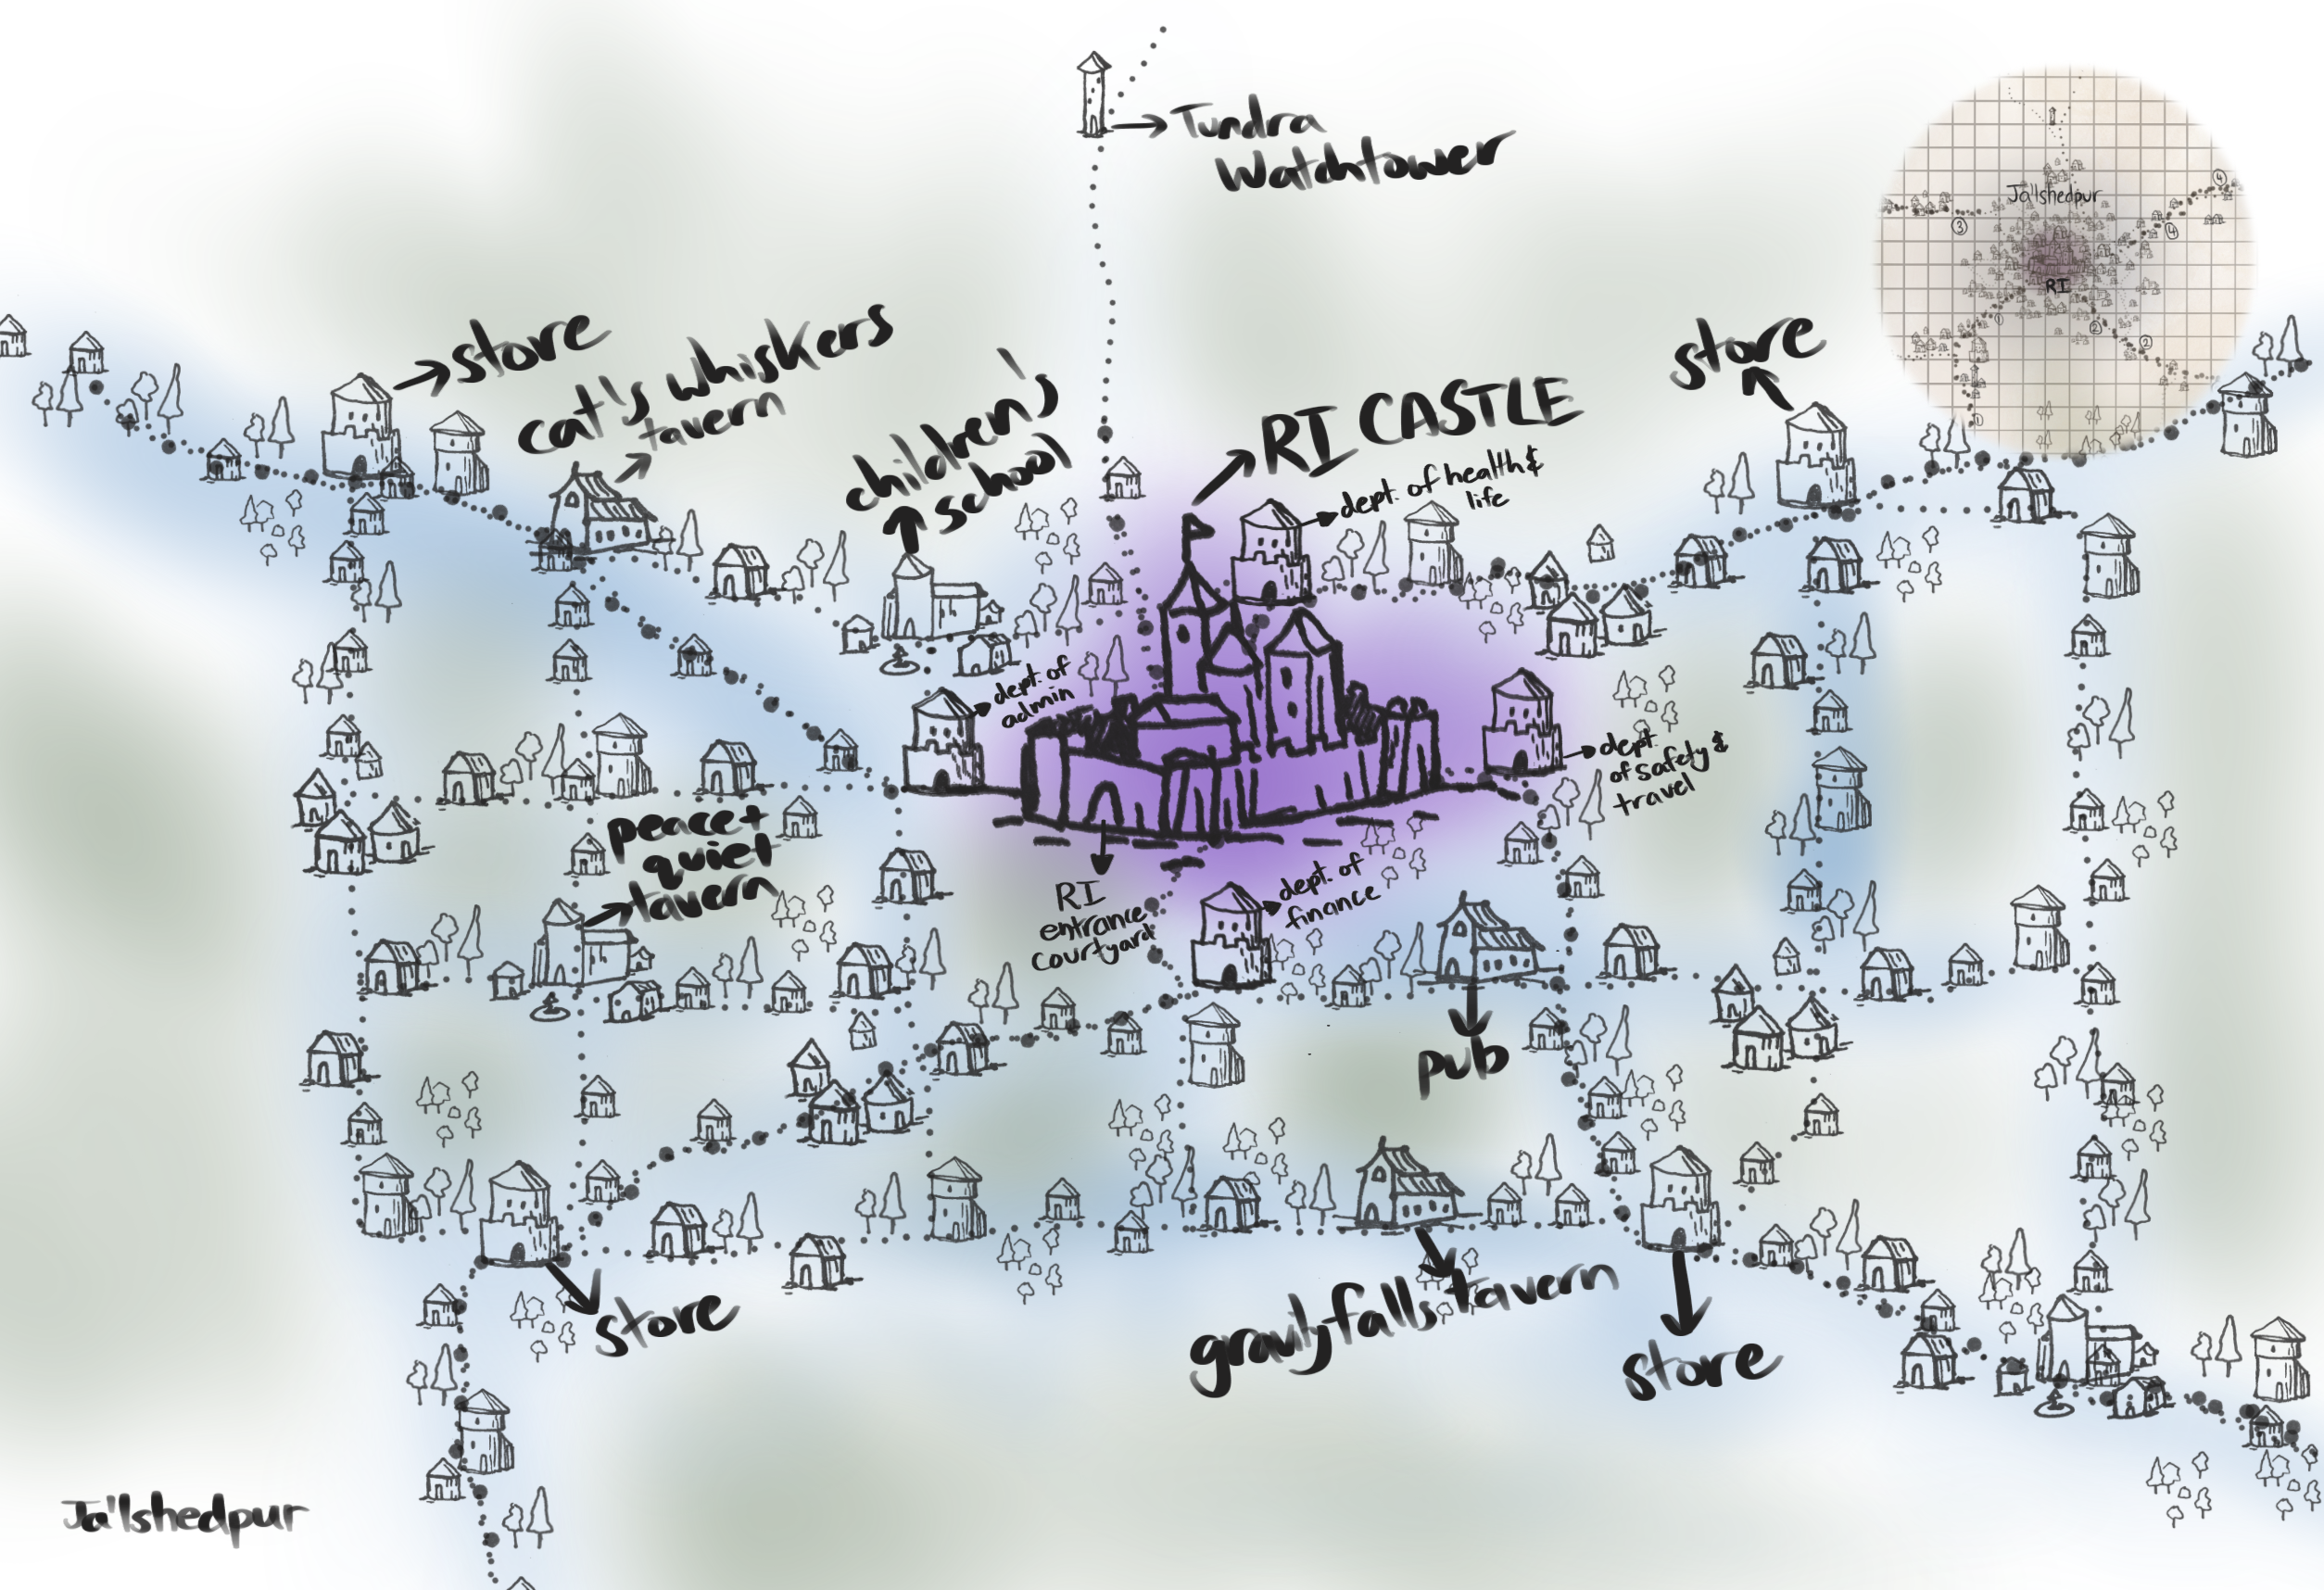 Tundra
Watchtower
Ja'lshedpur
RI
3
4
4
1
2
2
1
store
cat's whiskers
tavern
children's
school
RI CASTLE
dept. of health &
life
store
dept. of
admin
dept.
of safety &
travel
peace +
quiet
tavern
RI
entrance
courtyard
dept. of
finance
pub
store
gravityfalls tavern
store
Ja'lshedpur